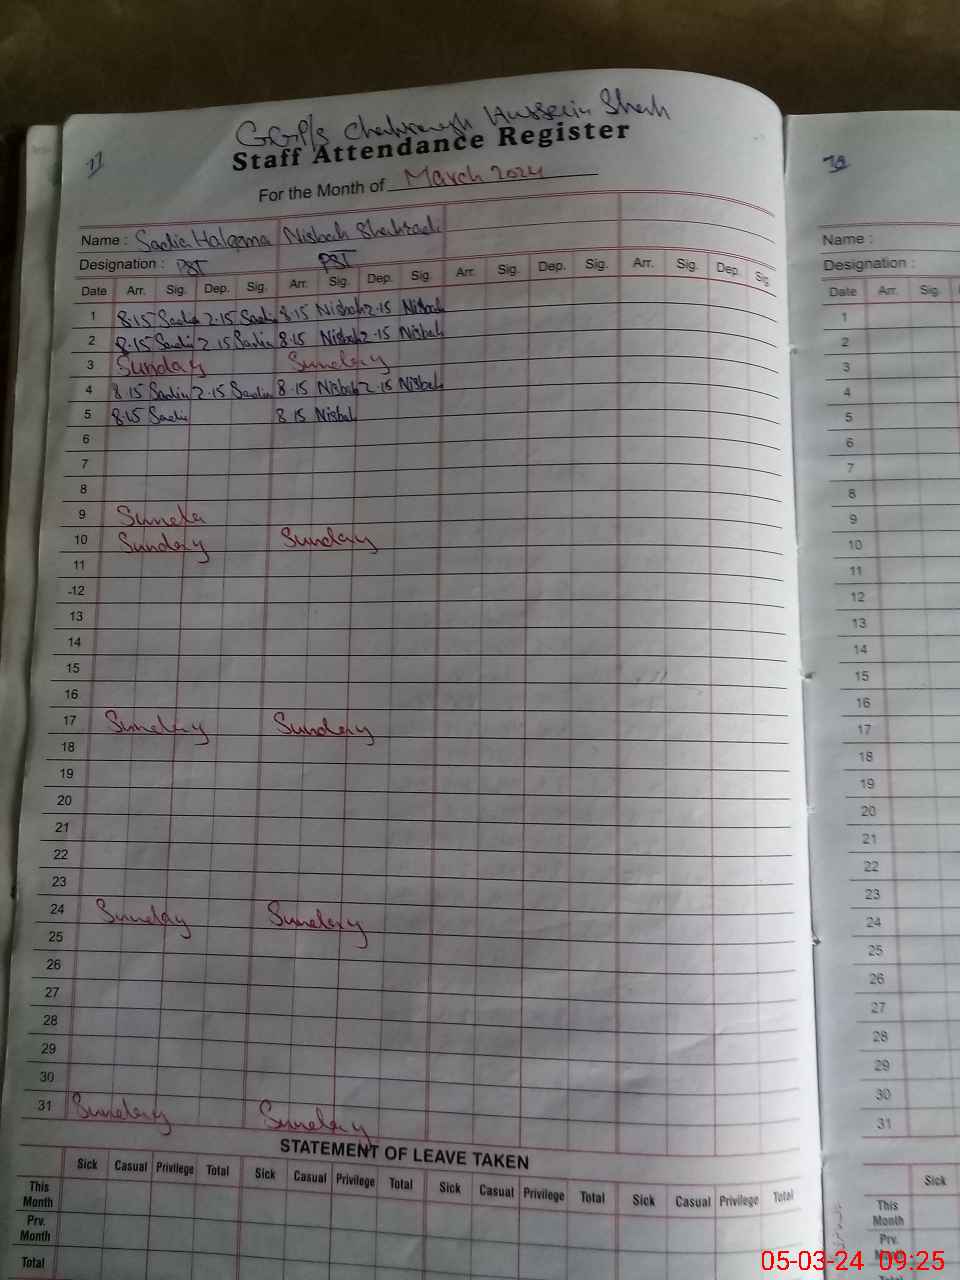 GGP/S Hussain Shah
Staff Attendance Register
For the Month of March 2024
Name : Sadia Haleema Nisbah Shahzadi
Designation : PST PST
Date Arr. Sig. Dep. Sig. Arr. Sig. Dep. Sig. Arr. Sig. Dep. Sig. Arr. Sig. Dep. Sig.
1 8.15 Sadia 2.15 Sadia 8.15 Nisbah 2.15 Nisbah
2 8.15 Sadia 2.15 Sadia 8.15 Nisbah 2.15 Nisbah
3 Sunday Sunday
4 8.15 Sadia 2.15 Sadia 8.15 Nisbah 2.15 Nisbah
5 8.15 Sadia 8.15 Nisbah
6
7
8
9 Sunda
10 Sunday Sunday
11
12
13
14
15
16
17 Sunday Sunday
18
19
20
21
22
23
24 Sunday Sunday
25
26
27
28
29
30
31 Sunday Sunday
STATEMENT OF LEAVE TAKEN
Sick Casual Privilege Total Sick Casual Privilege Total Sick Casual Privilege Total Sick Casual Privilege Total
This Month
Prv. Month
Total
Name :
Designation :
Date Arr. Sig.
1
2
3
4
5
6
7
8
9
10
11
12
13
14
15
16
17
18
19
20
21
22
23
24
25
26
27
28
29
30
31
Sick
This Month
Prv. Month
05-03-24 09:25